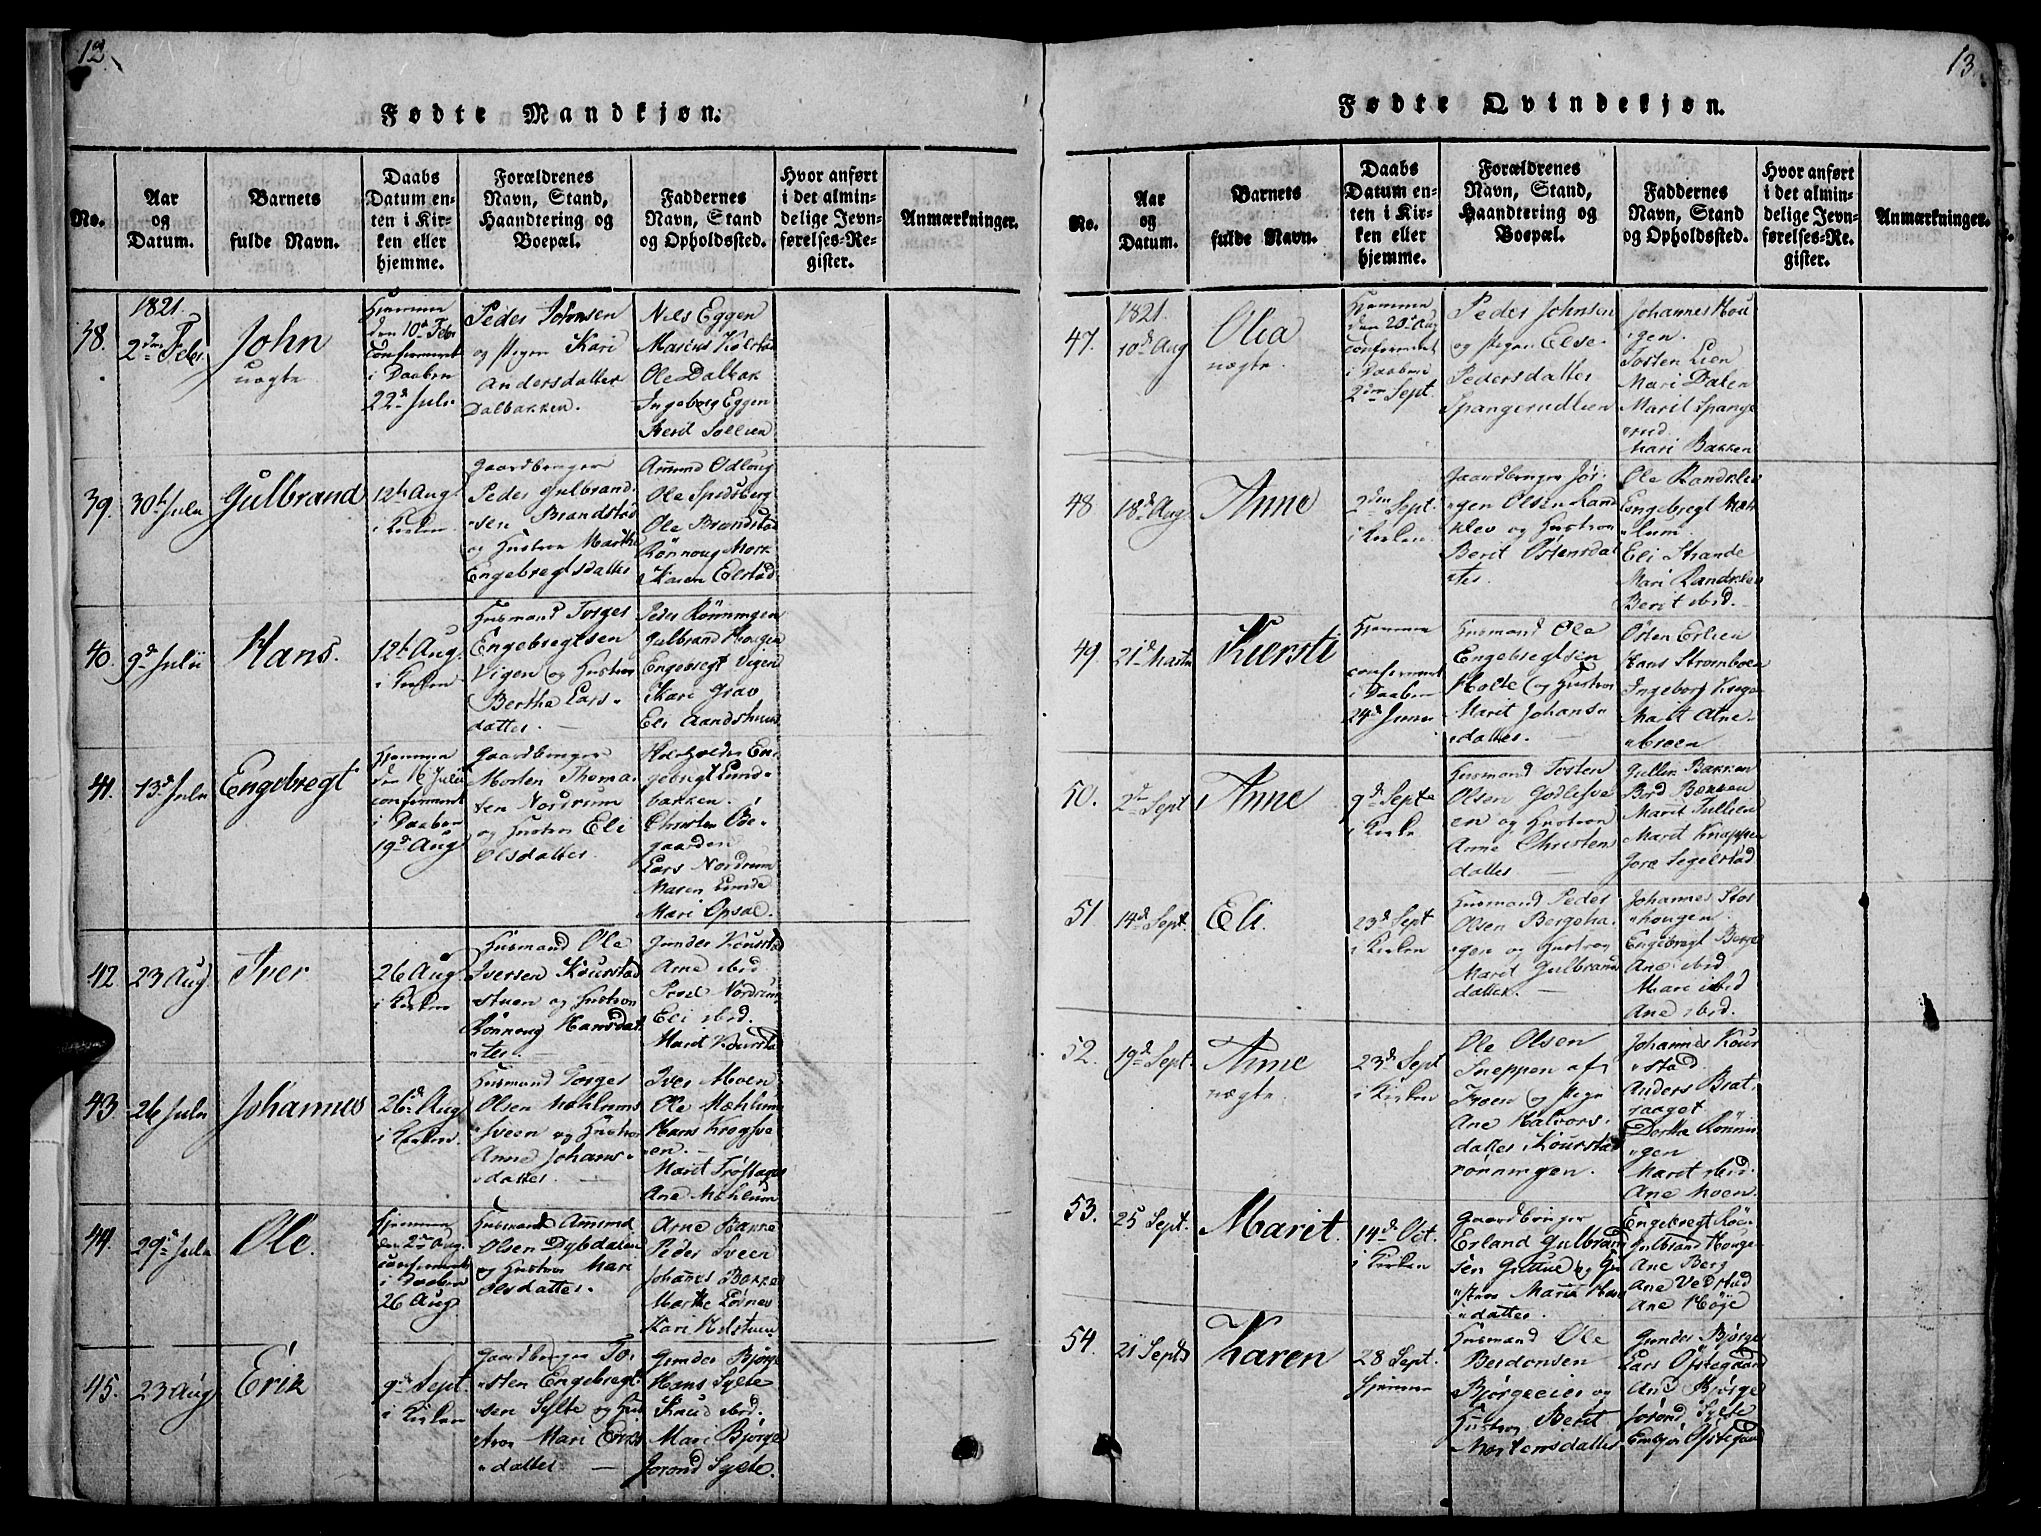 12
Fødte Mandkjøn.
No.
Aar
og
Datum.
Barnets
fulde Navn.
Daabs
Datum en-
ten i Kir-
ken eller
hjemme.
Forældrenes
Navn, Stand,
Haandtering og
Boepæl.
Faddernes
Navn, Stand
og Opholdssted.
Hvor anført
i det almin-
delige Jevn-
førelses-Re-
gister.
Anmærkninger.
38.
1821.
2den Febr
John
uægte
Hjemme
den 10de Febr
confirmeret
i Daaben
22de Juli
Peder Johnsen
og Pigen Kari
Andersdatter
Dalbakken.
Nils Eggen
Marius Kolstad
Ole Dalbak
Ingeborg Eggen
Berit Sollien
39.
30te Julii
Gulbrand
12te Aug.
i Kirken
Gaardbruger
Peder Gulbrand-
sen Brandstad
og Hustroe Marthe
Engebregtsdatter
Amund Odloug
Ole Spidsberg
Ole Brandstad
Rönnoug Mork
Karen Elstad
40.
9de Julii
Hans.
12te Aug.
i Kirken
Husmand Torger
Engebregtsen
Vigen og Hustroe
Berthe Lars-
datter.
Peder Rönningen
Gulbrand Hougen
Engebregt Vigen
Kari Grav
Eli Aandshuus
41.
13de Julii
Engebregt
Hjemme
den 16 Julii
confirmeret
i Daaben
19de Aug
Gaardbruger
Morten Thoma-
sen Nordrum
og Hustroe Eli
Olsdatter.
En-
gebregt Lunde-
bakken.
Christen Öe-
gaarden
Lars Nordrum
Maren Lunde
Mari Opsal.
42.
23 Aug
Iver
26 Aug
i Kirken
Husmand Ole
Iversen Kourstad
stuen og Hustroe
Rönnoug Hansdat-
ter.
Gunder Kourstad
Arne ibid
Povel Nordrum
Eli ibid.
Marit Kourstad
43
26 Julii
Johannes
26de Aug
i Kirken
Husmand Torger
Olsen Mæhlums
Sveen og Hustroe
Anne Johans-
datter.
Iver Moen
Ole Mæhlum
Hans Krogsve-
en.
Marit Tröstager
Ane Mæhlum
44.
29de Julii
Ole.
Hjemme
den 2den Aug.
confirmeret
i Daaben
26 Aug.
Husmand Amund
Olsen Dybdalen
og Hustroe Mari
Olsdatter.
Arne Ranne
Peder Sveen
Johannes Bakke
Marthe Lornes
Kari Holstuen
45.
23 Aug
Erik
9de Sept.
i Kirken
Gaardbruger To-
sten Engebregt-
sen Sylte og Hu-
stroe Mari Eriks-
datter
Gunder Bjørge
Hans Sylte
Knud ibid.
Mari Bjørge
Jorond Sylte.
13.
Fødte Qvindekjøn.
No.
Aar
og
Datum.
Barnets
fulde Navn.
Daabs
Datum en-
ten i Kir-
ken eller
hjemme.
Forældrenes
Navn, Stand,
Haandtering og
Boepæl.
Faddernes
Navn, Stand
og Opholdssted.
Hvor anført
i det almin-
delige Jevn-
førelses-Re-
gister.
Anmærkninger.
47.
1821.
10de Aug
Olia
uægte
Hjemme
den 20de Aug
confirmeret
i Daaben
2den Sept.
Peder Johnsen
og Pigen Else
Pedersdatter
Spangerudlien
Johannes Hou-
gen.
Tosten Lien
Mari Dalen
Marit Spange-
rud.
Mari Bakken
48
18de Aug.
Anne
2den Sept.
i Kirken.
Gaardbruger Jör-
gen Olsen Rand-
klev og Hustroe
Berit Östensdat-
ter.
Ole Randklev
Engebregt Mæh-
lum
Eli Strande
Mari Randklev
Berit ibid.
49
21de Martii
Kiersti
Hjemme
confirmeret
i Daaben
24de Junii
Husmand Ole
Engebregtsen
Holte og Hustroe
Marit Johans-
datter.
Östen Erlien
Hans Stromboen
Ingeborg
Marit Atne-
broen
50.
2den Sept
Anne
9de Sept
i Kirken
Husmand Tosten
Olsen Godlisve-
en og Hustroe
Anne Christens-
datter
Gullik Bakken
Bord Bækken
Marit Tullien
Marit Knappen
Jore Segelstad
51
14de Sept.
Eli.
23de Sept
i Kirken
Husmand Peder
Olsen Bergeha-
gen og Hustroe
Marit Gulbrands-
datter.
Johannes Stor-
hougen.
Engebregt Berge
Ane ibid
Mari ibid
Ane ibid.
52.
19de Sept.
Anne
uægte
23de Sept
i Kirken
Ole Olsen
Sneppen af
Froen og Pige
Ane Halvors-
datter Kourstad
rönningen.
Johannes Kour-
stad
Anders Brat-
Dorthe Rönnin-
gen
Marit ibid.
Ane Moen.
53.
25 Sept.
Marit.
14de Oct.
i Kirken
Gaardbruger
Erland Gulbrand-
sen og Hu-
stroe
datter.
Engebregt
Gulbrand Hougen
Ane Berg
Ane Vedstad
Ane Høye
54.
21 Septb
Karen
28 Sept.
hjemme
Husmand Ole
Berdonsen
Bjørgeeier og
Hustroe Berit
Mortensdatter
Gunder Bjørge
Lars Öfstegaard
Ane Bjørge
Jorond Sylte
Embjør Öfstegaard